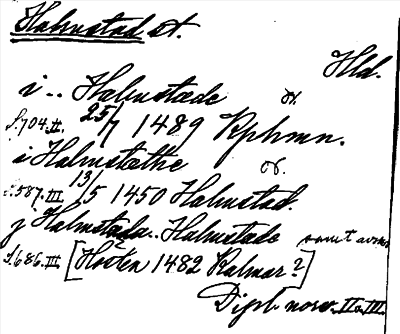 Halmstad st.
Hld.
i .. Halmstæde or.
S. 704. II. 25/7 1489 Kphmn.
i Halmstæthe or.
s. 587. III 13/5 1450 Halmstad.
j Halmstada.. Halmstade samt
S. 686. III [Hösten 1482 Kalmar?]
Dipl. norv. II o. III.